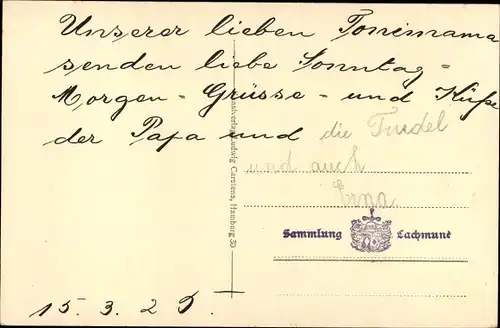 Unserer lieben Tonimama
senden liebe Sonntag-
Morgen-Grüsse-und Küße
der Papa und die Trudel
und auch
Erna
Kunstverlag Ludwig Carstens, Hamburg 30
Sammlung Lachmund
15. 3. 25.